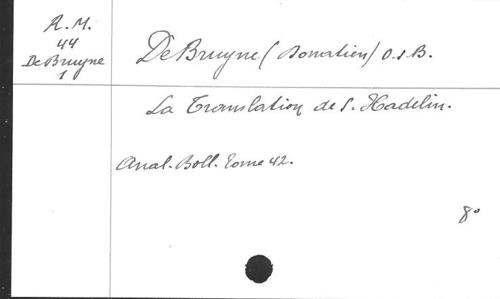 R. M.
44
De Bruyne
1
De Bruyne (Donatien) O.S.B.
La Translation de S. Hadelin.
Anal. Boll. Tome 42.
8°